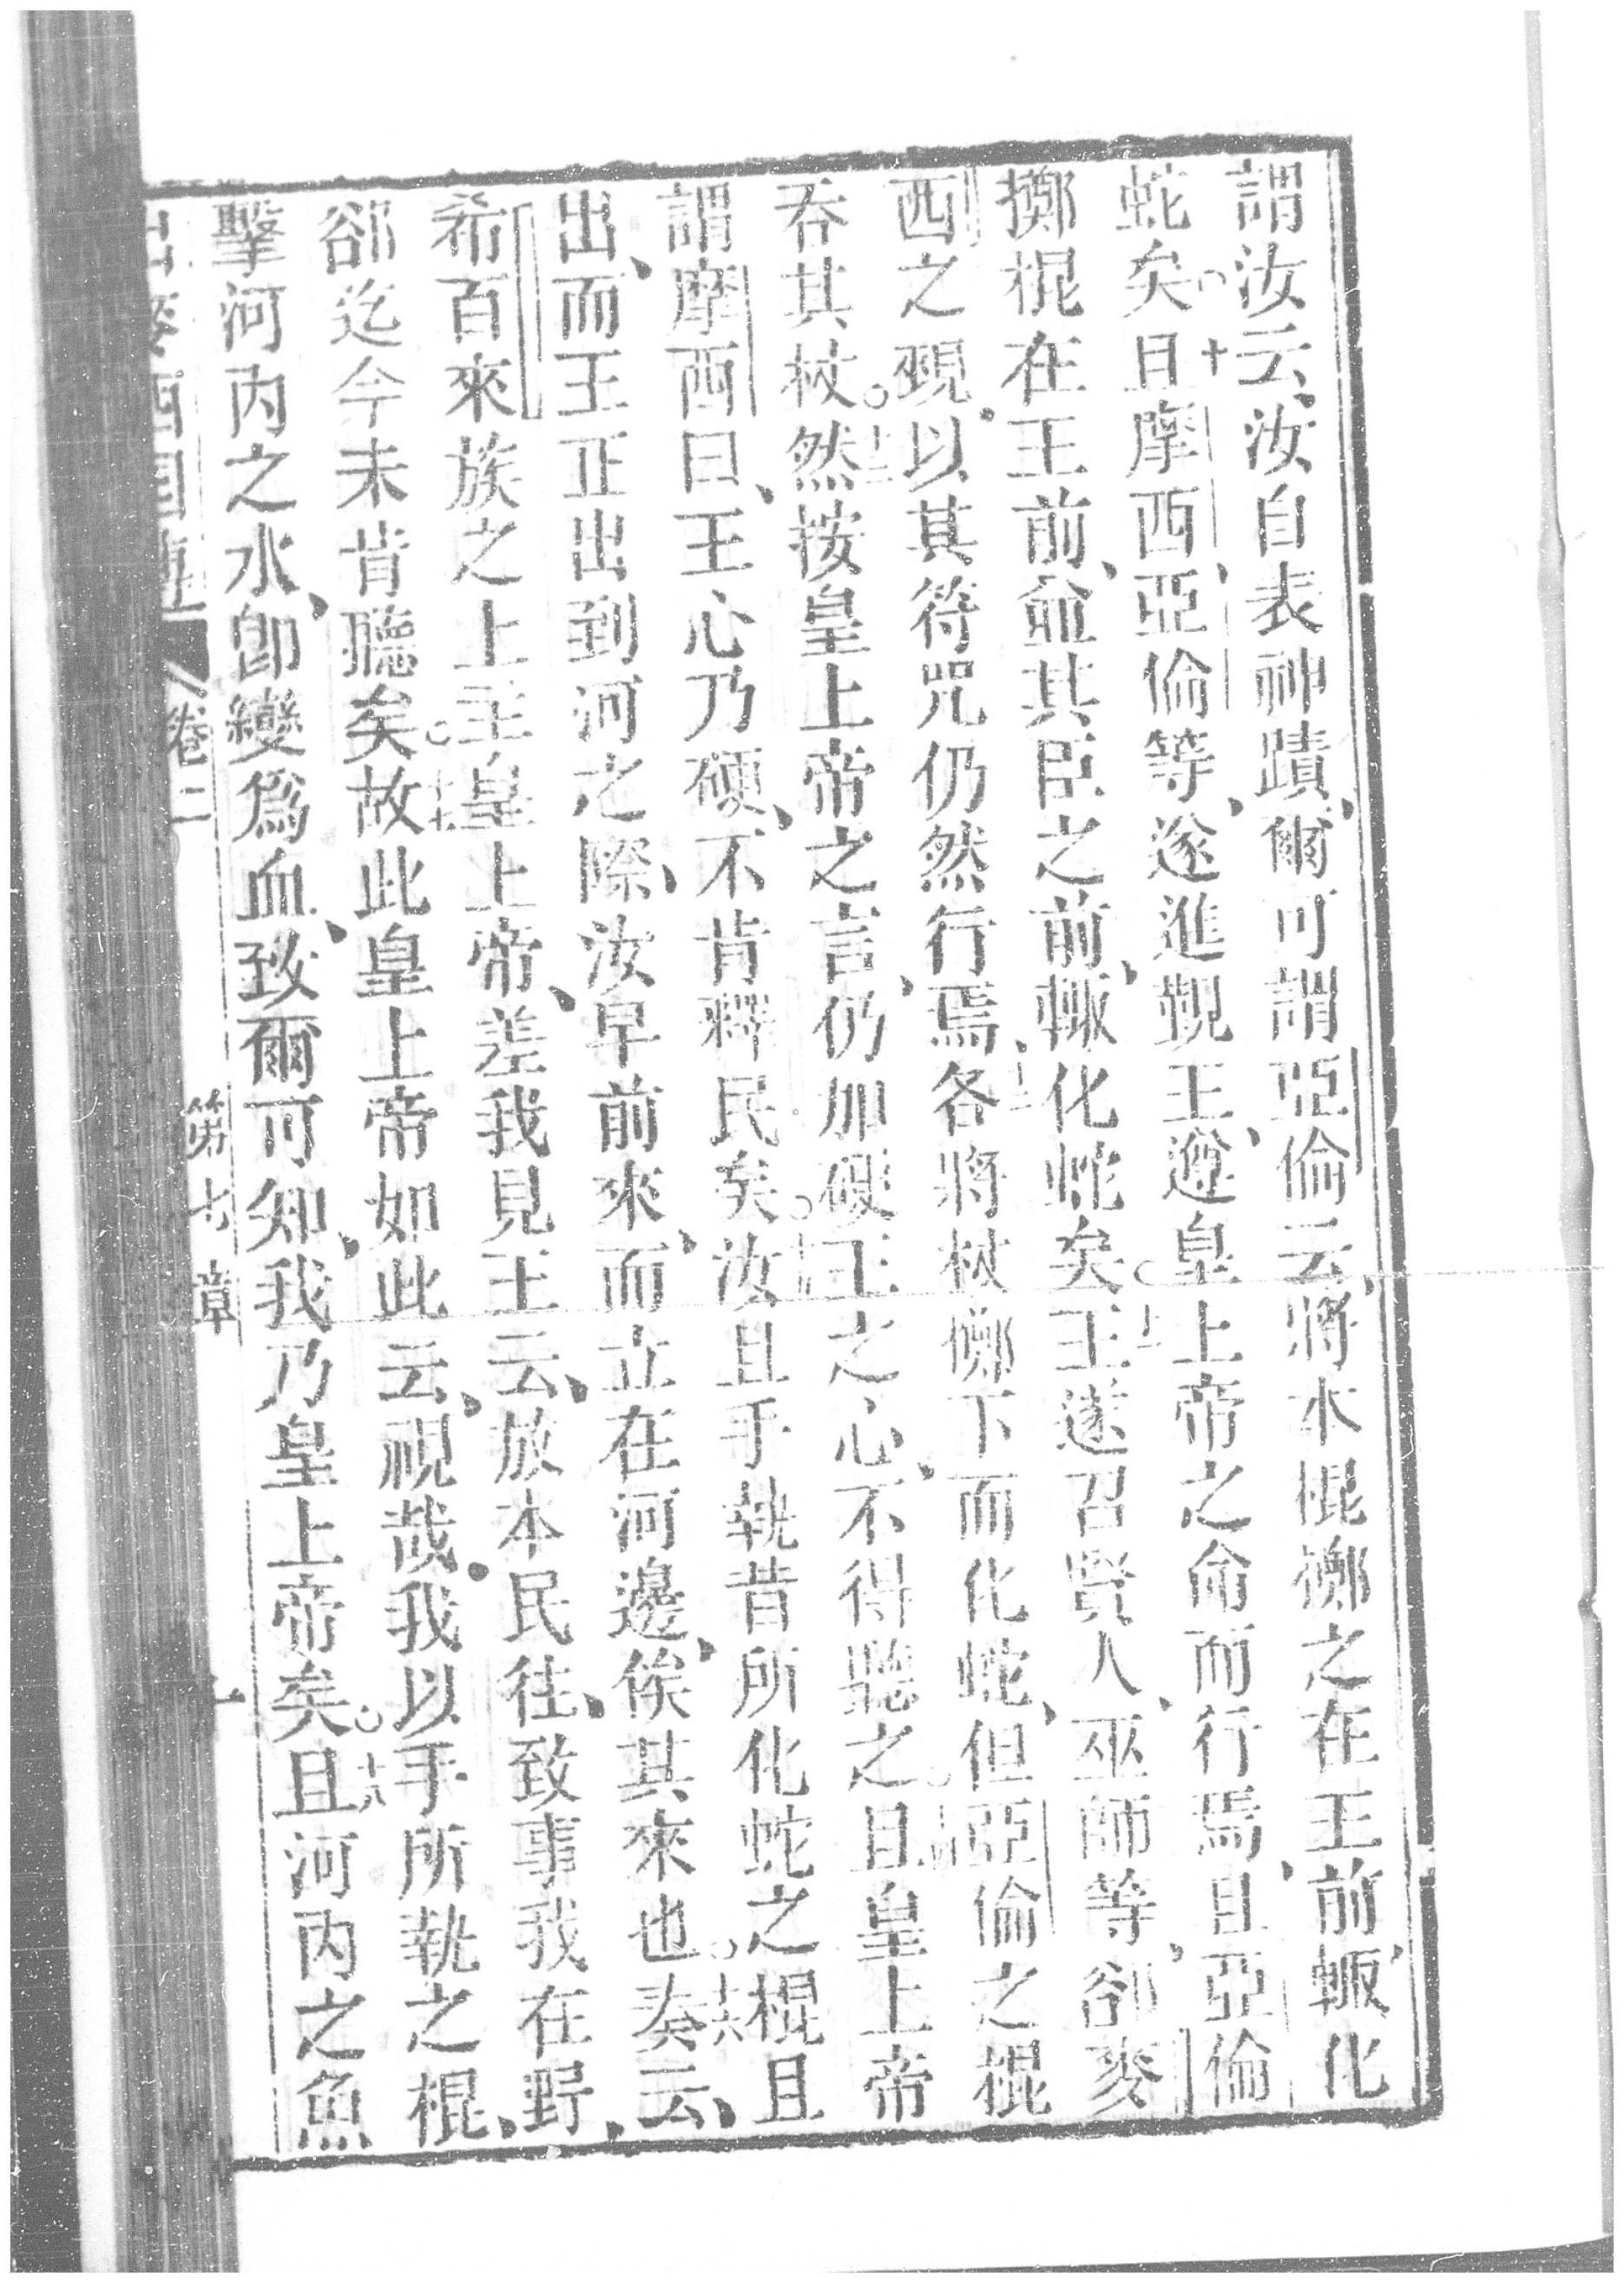 謂汝云、汝自表神蹟、爾可謂亞倫云、將木棍擲之在王前、輙化
蛇矣。十且摩西、亞倫等、遂進觐王、遵皇上帝之命而行焉、且亞倫
擲棍在王前、並其臣之前、輙化蛇矣。十一王遂召賢人、巫師等、卻麥
西之覡、以其符咒仍然行焉、十二各將杖擲下而化蛇、但亞倫之棍
吞其杖。十三然按皇上帝之言、仍加硬王之心、不得聽之。十四且皇上帝
謂摩西曰、王心乃硬、不肯釋民矣。十五汝且手執昔所化蛇之棍、且
出、而王正出到河之際、汝早前來、而立在河邊、俟其來也。十六奏云、
希百來族之上主皇上帝、差我見王云、放本民往、致事我在野、
卻迄今未肯聽矣。十七故此皇上帝如此云、視哉、我以手所執之棍、
擊河内之水、卽變爲血、致爾可知、我乃皇上帝矣。十八且河内之魚
卷二 第七章 十